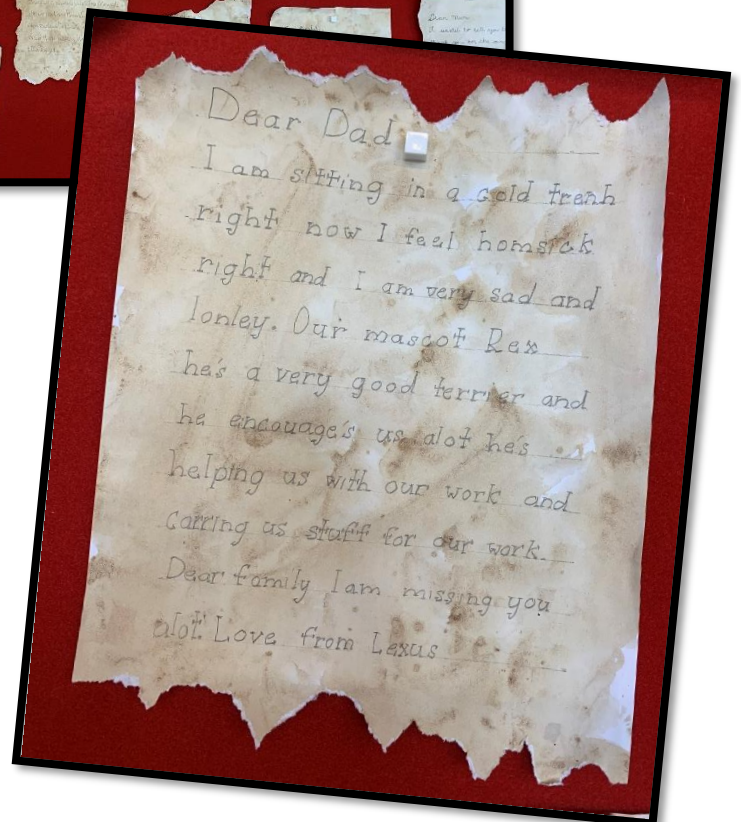 Dear Dad
I am sitting in a cold trenh
right now I feel homsick
right and I am very sad and
lonley. Our mascot Rex
he's a very good terrier and
he encouage's us alot he's
helping us with our work and
carring us stuff for our work.
Dear family I am missing you
alot. Love from Lexus